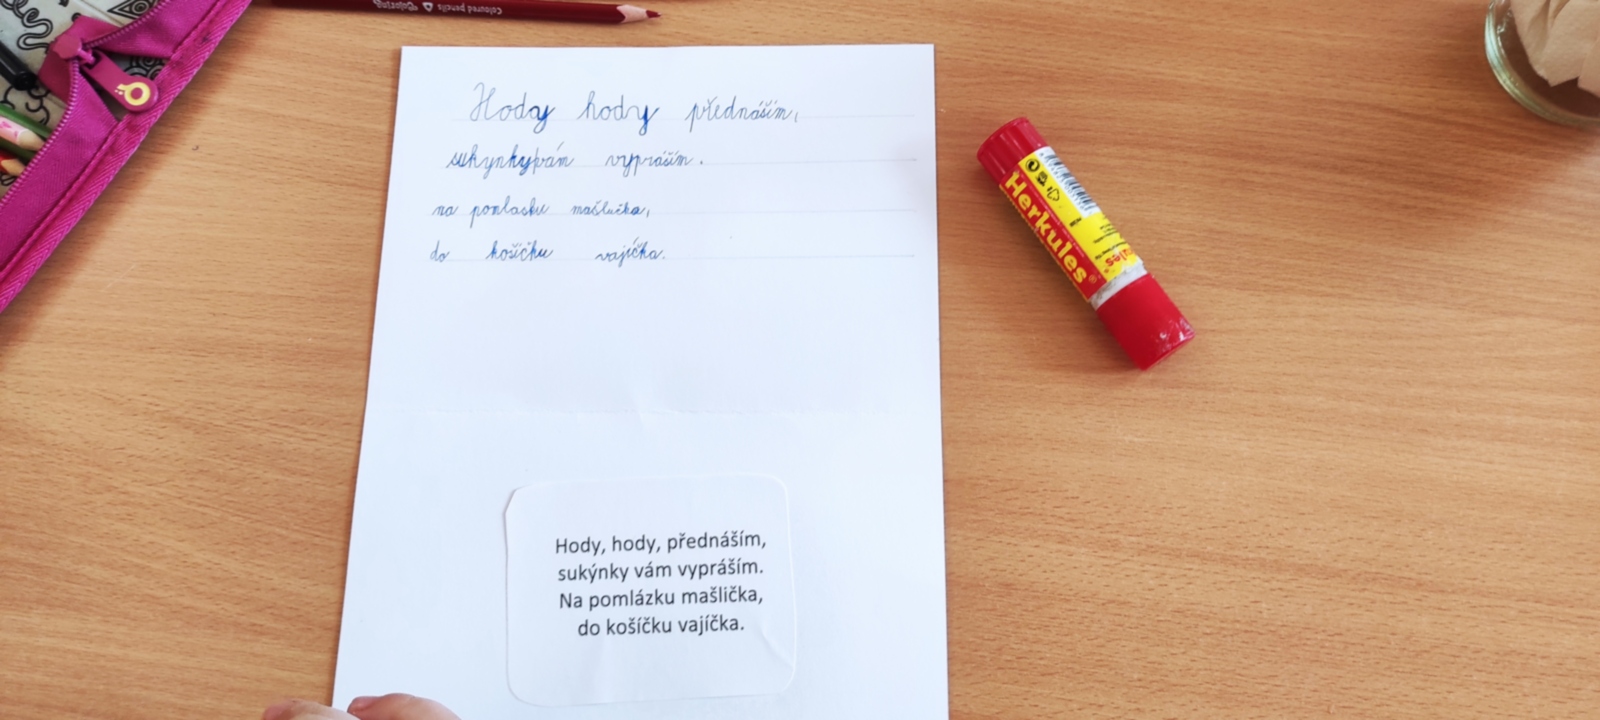 Coloured pencils
Hody hody přednáším,
sukynky vám vypráším.
na pomlasku mašlička,
do košíčku vajíčka.
Herkules
Hody, hody, přednáším,
sukýnky vám vypráším.
Na pomlázku mašlička,
do košíčku vajíčka.